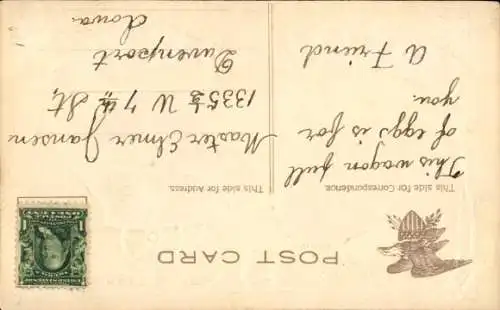 POST CARD
This side for Correspondence.
This side for Address.
This wagon full
of eggs is for
you.
A Friend
Master Elmer Jansen
1335½ W 7th St,
Davenport
Iowa.